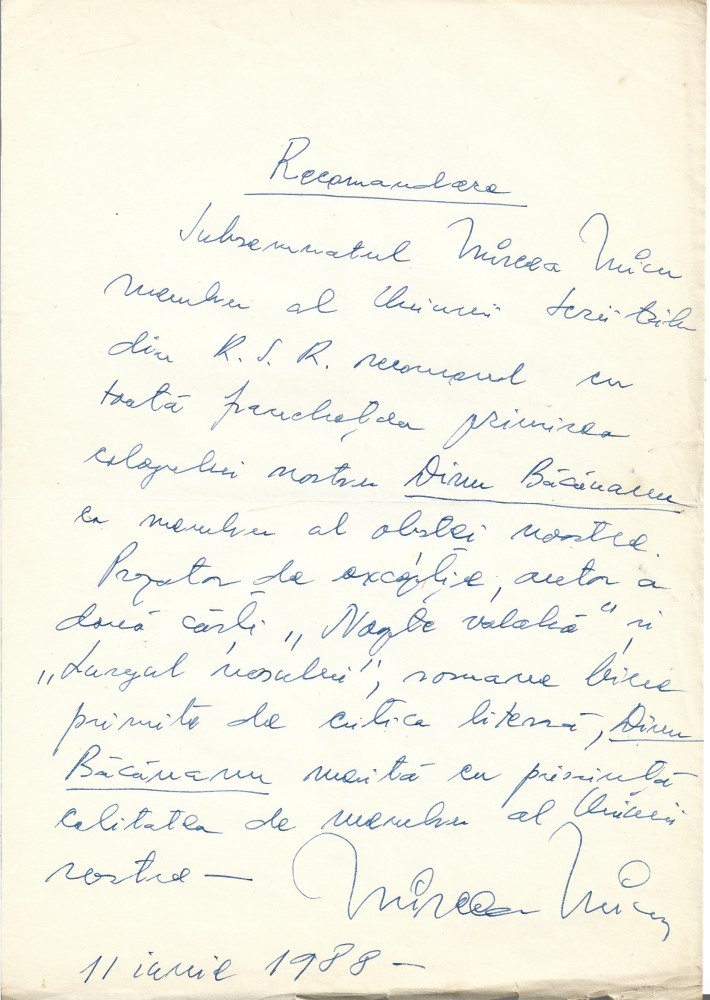 Recomandare
Subsemnatul Mircea Micu
membru al Uniunii Scriitorilor
din R.S.R. recomand cu
toată franchețea primirea
colegului nostru Dinu Băcăuanu
ca membru al obștei noastre.
Prozator de excepție, autor a
două cărți „Noapte valahă" și
„Lungul nosului", romane bine
primite de critica literară, Dinu
Băcăuanu merită cu prisosință
calitatea de membru al Uniunii
nostre —
Mircea Micu
11 iunie 1988 —